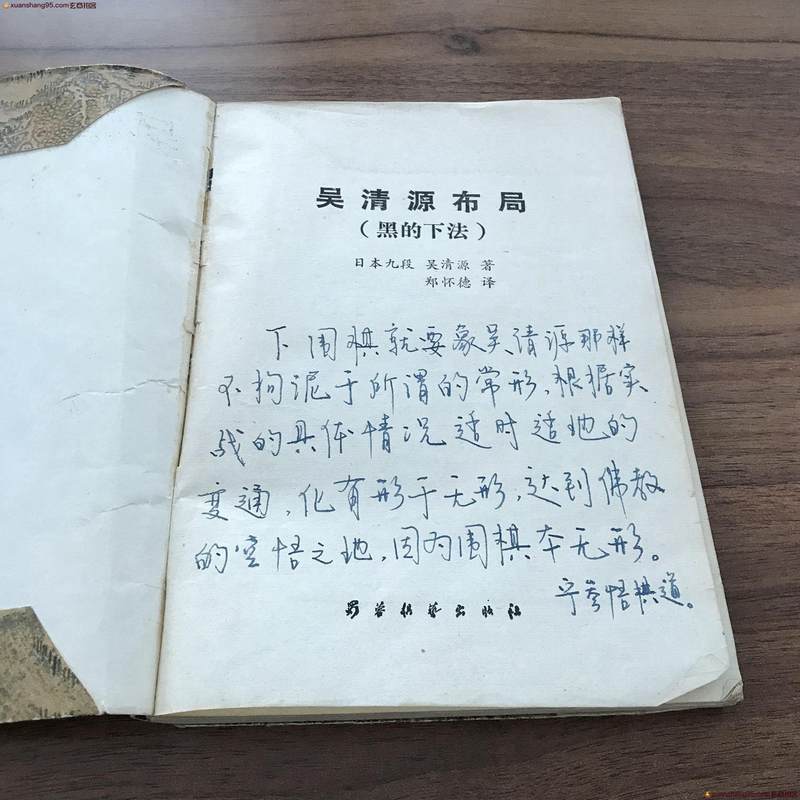 xuanshang95.com
吴清源布局
（黑的下法）
日本九段 吴清源 著
郑怀德 译
下围棋就要象吴清源那样
不拘泥于所谓的常形，根据实
战的具体情况适时适地的
变通，化有形于无形，达到佛教
的空悟之地，因为围棋本无形。
宁参悟棋道。
蜀蓉棋艺出版社
xuanshang95.com